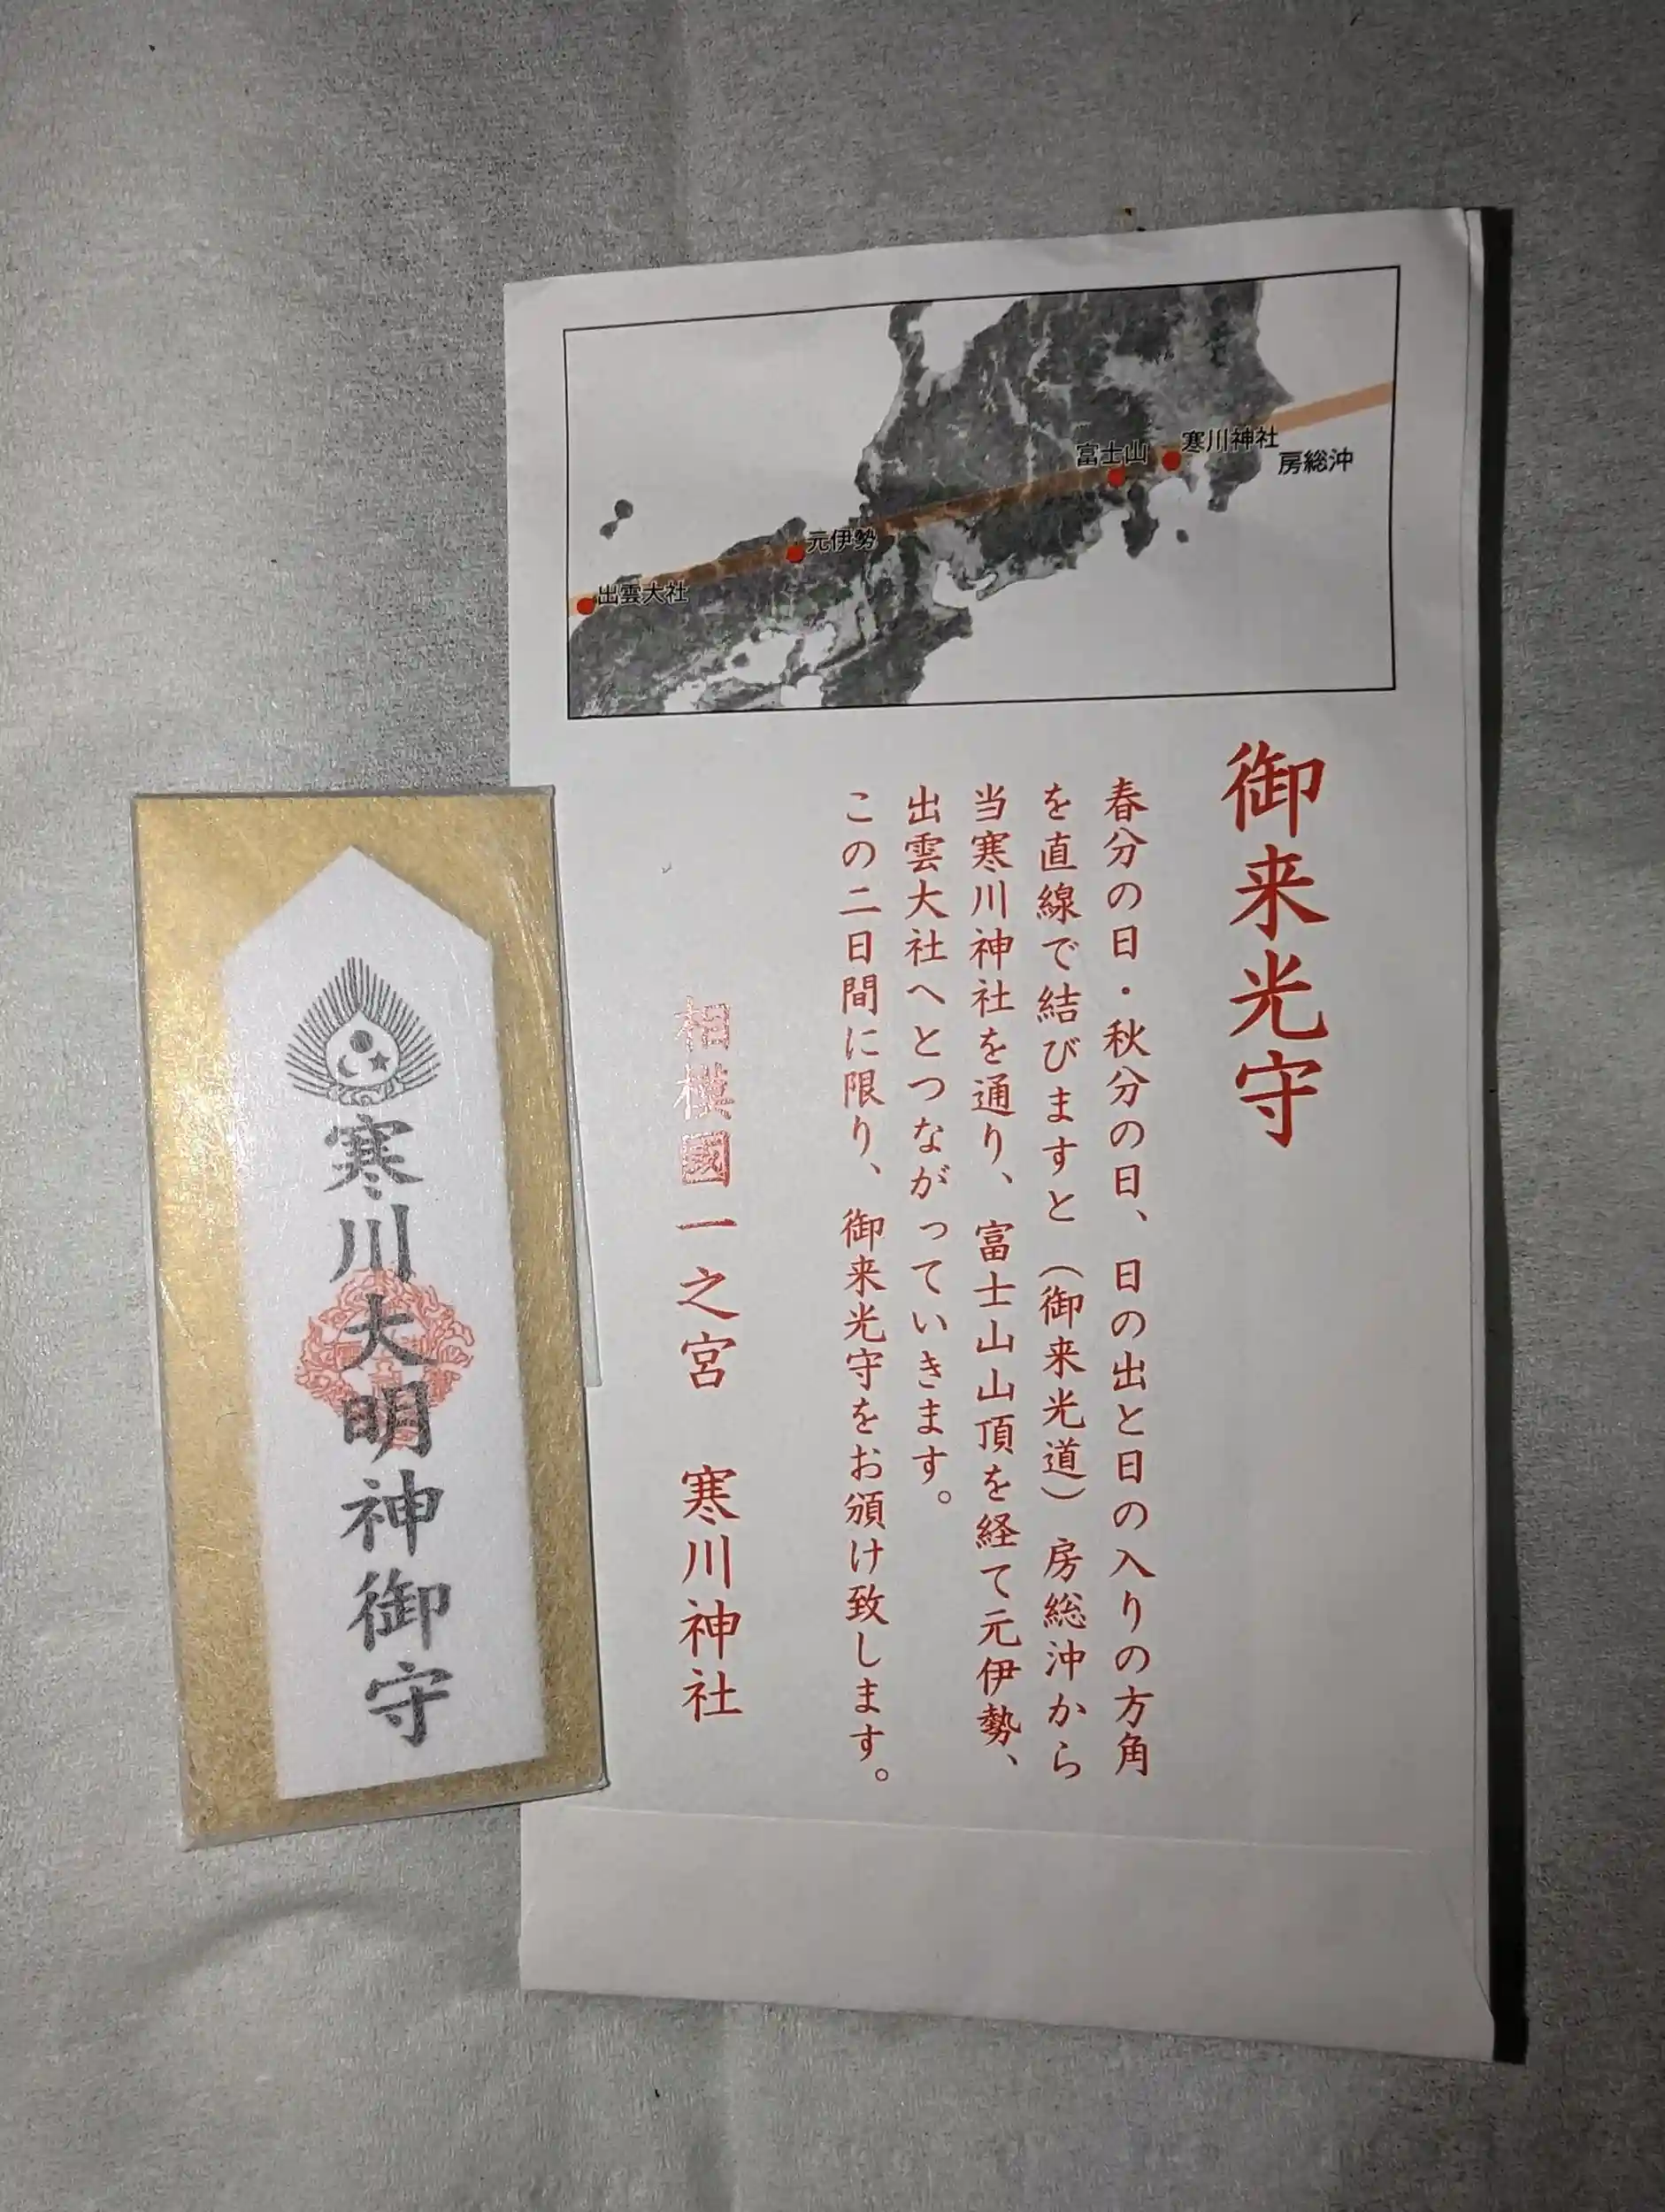 富士山
寒川神社
房総沖
元伊勢
出雲大社
御来光守
春分の日・秋分の日、日の出と日の入りの方角
を直線で結びますと（御来光道）房総沖から
当寒川神社を通り、富士山山頂を経て元伊勢、
出雲大社へとつながっていきます。
この二日間に限り、御来光守をお頒け致します。
相模國一之宮 寒川神社
寒川大明神御守